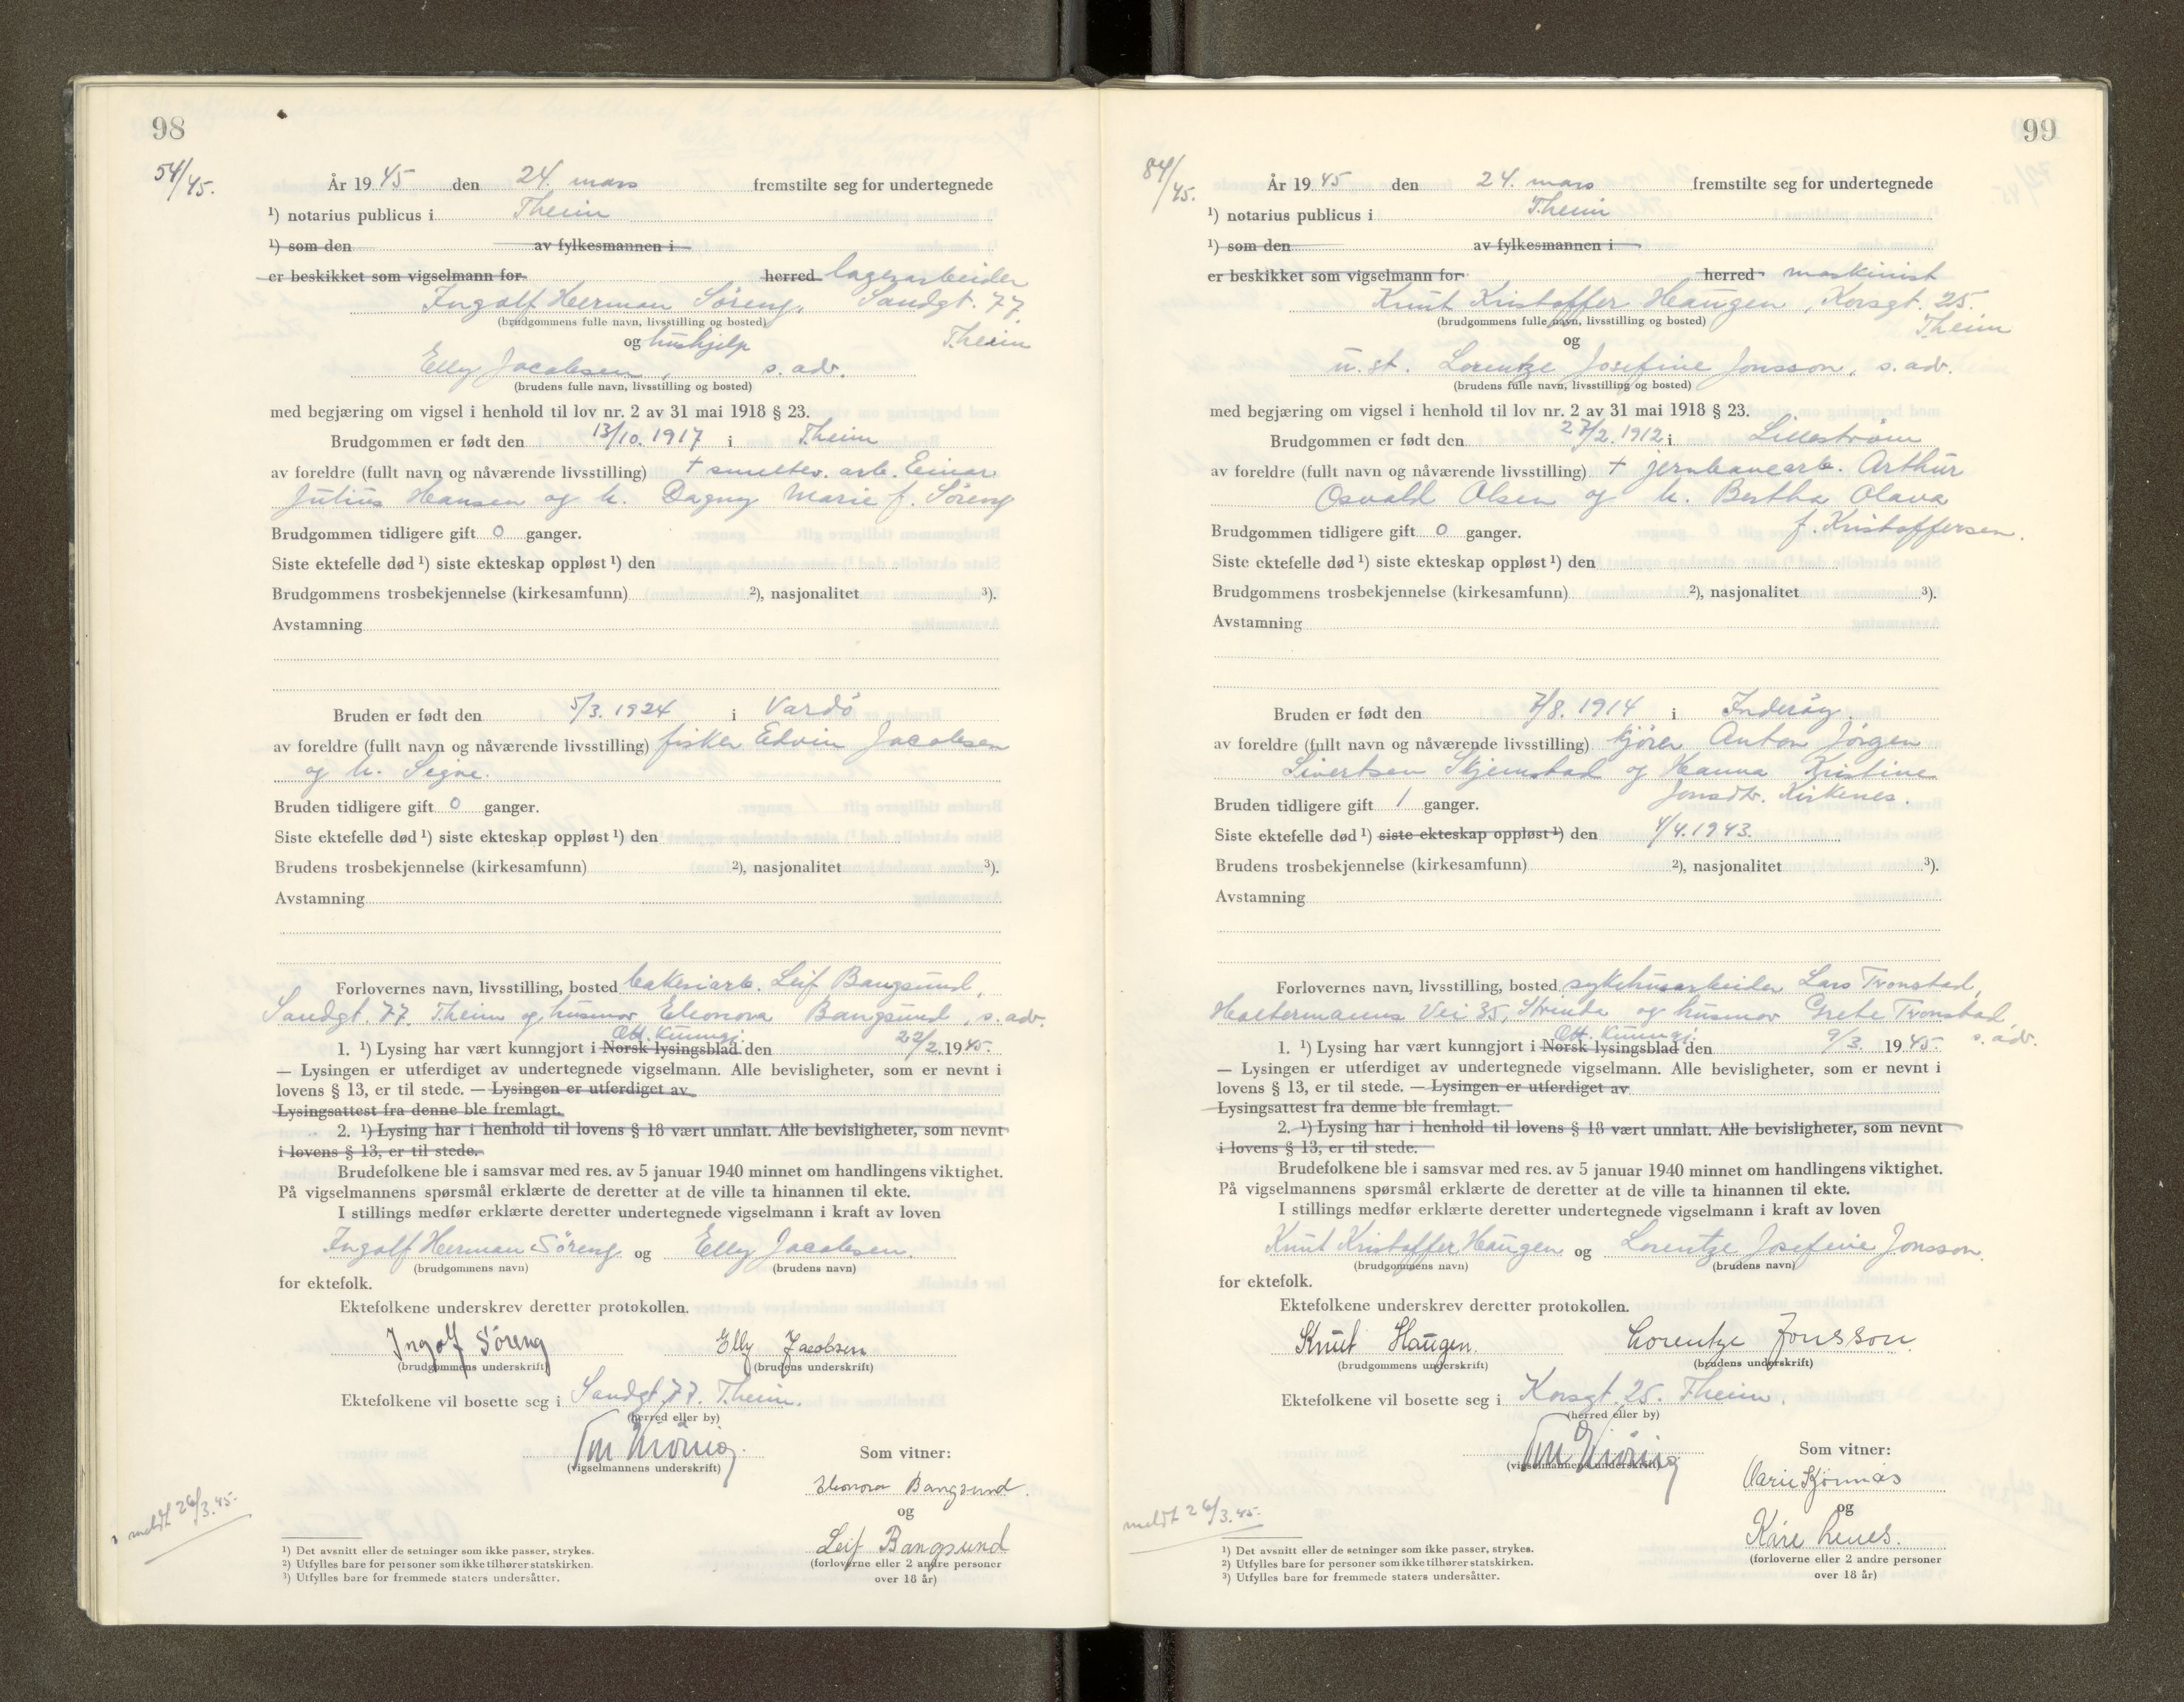 98
54/45.
År 1945 den 24. mars fremstilte seg for undertegnede
¹) notarius publicus i Theim
¹) som den av fylkesmannen i
er beskikket som vigselmann for herred lagerarbeider
Ingolf Herman Söreng, Sandgt. 77
(brudgommens fulle navn, livsstilling og bosted)
og hushjelp Theim
Elly Jacobsen, s. adr.
(brudens fulle navn, livsstilling og bosted)
med begjæring om vigsel i henhold til lov nr. 2 av 31 mai 1918 § 23.
Brudgommen er født den 13/10. 1917 i Theim
av foreldre (fullt navn og nåværende livsstilling) + smeltev. arb. Einar
Julius Hansen og h. Dagny Marie f. Söreng
Brudgommen tidligere gift 0 ganger.
Siste ektefelle død ¹) siste ekteskap oppløst ¹) den
Brudgommens trosbekjennelse (kirkesamfunn) ²), nasjonalitet ³).
Avstamning
Bruden er født den 5/3. 1924 i Vardö
av foreldre (fullt navn og nåværende livsstilling) fisker Edvin Jacobsen
og h. Signe.
Bruden tidligere gift 0 ganger.
Siste ektefelle død ¹) siste ekteskap oppløst ¹) den
Brudens trosbekjennelse (kirkesamfunn) ²), nasjonalitet ³).
Avstamning
Forlovernes navn, livsstilling, bosted bakeriarb. Leif Bangsund,
Sandgt. 77. Theim og husmor Eleonora Bangsund, s. adr.
Off. Kunngj.
1. ¹) Lysing har vært kunngjort i Norsk lysingsblad den 22/2. 1945.
— Lysingen er utferdiget av undertegnede vigselmann. Alle bevisligheter, som er nevnt i
lovens § 13, er til stede. — Lysingen er utferdiget av
Lysingsattest fra denne ble fremlagt.
2. ¹) Lysing har i henhold til lovens § 18 vært unnlatt. Alle bevisligheter, som nevnt
i lovens § 13, er til stede.
Brudefolkene ble i samsvar med res. av 5 januar 1940 minnet om handlingens viktighet.
På vigselmannens spørsmål erklærte de deretter at de ville ta hinannen til ekte.
I stillings medfør erklærte deretter undertegnede vigselmann i kraft av loven
Ingolf Herman Söreng og Elly Jacobsen.
(brudgommens navn) (brudens navn)
for ektefolk.
Ektefolkene underskrev deretter protokollen.
Ingolf Söreng Elly Jacobsen
(brudgommens underskrift) (brudens underskrift)
Ektefolkene vil bosette seg i Sandgt. 77. Theim.
(herred eller by)
(vigselmannens underskrift)
Som vitner:
Eleonora Bangsund.
og
Leif Bangsund
(forloverne eller 2 andre personer
over 18 år)
meldt 26/3.45.
¹) Det avsnitt eller de setninger som ikke passer, strykes.
²) Utfylles bare for personer som ikke tilhører statskirken.
³) Utfylles bare for fremmede staters undersåtter.
99
84/45.
År 1945 den 24. mars fremstilte seg for undertegnede
¹) notarius publicus i Theim
¹) som den av fylkesmannen i
er beskikket som vigselmann for herred maskinist
Knut Kristoffer Haugen, Korsgt. 25.
(brudgommens fulle navn, livsstilling og bosted) Theim
og
u. st. Lorentze Josefine Jonsson, s. adr.
(brudens fulle navn, livsstilling og bosted)
med begjæring om vigsel i henhold til lov nr. 2 av 31 mai 1918 § 23.
Brudgommen er født den 27/2. 1912 i Lilleström
av foreldre (fullt navn og nåværende livsstilling) + jernbanearb. Arthur
Osvald Olsen og h. Bertha Olava
f. Kristoffersen.
Brudgommen tidligere gift 0 ganger.
Siste ektefelle død ¹) siste ekteskap oppløst ¹) den
Brudgommens trosbekjennelse (kirkesamfunn) ²), nasjonalitet ³).
Avstamning
Bruden er født den 7/8. 1914 i Inderöy.
av foreldre (fullt navn og nåværende livsstilling) kjörer Anton Jörgen
Sivertsen Skjemstad og Hanna Kristine
Jonsdtr. Kirkenes.
Bruden tidligere gift 1 ganger.
Siste ektefelle død ¹) siste ekteskap oppløst ¹) den 4/4. 1943.
Brudens trosbekjennelse (kirkesamfunn) ²), nasjonalitet ³).
Avstamning
Forlovernes navn, livsstilling, bosted sykehusarbeider Lars Tronstad,
Haltermanns Vei 35, Strinda og husmor Grete Tronstad
s. adr.
Off. Kunngj.
1. ¹) Lysing har vært kunngjort i Norsk lysingsblad den 9/3. 1945.
— Lysingen er utferdiget av undertegnede vigselmann. Alle bevisligheter, som er nevnt i
lovens § 13, er til stede. — Lysingen er utferdiget av
Lysingsattest fra denne ble fremlagt.
2. ¹) Lysing har i henhold til lovens § 18 vært unnlatt. Alle bevisligheter, som nevnt
i lovens § 13, er til stede.
Brudefolkene ble i samsvar med res. av 5 januar 1940 minnet om handlingens viktighet.
På vigselmannens spørsmål erklærte de deretter at de ville ta hinannen til ekte.
I stillings medfør erklærte deretter undertegnede vigselmann i kraft av loven
Knut Kristoffer Haugen og Lorentze Josefine Jonsson.
(brudgommens navn) (brudens navn)
for ektefolk.
Ektefolkene underskrev deretter protokollen.
Knut Haugen. Lorentze Jonsson.
(brudgommens underskrift) (brudens underskrift)
Ektefolkene vil bosette seg i Korsgt. 25. Theim.
(herred eller by)
(vigselmannens underskrift)
Som vitner:
og
Kåre
(forloverne eller 2 andre personer
over 18 år)
meldt 26/3.45.
¹) Det avsnitt eller de setninger som ikke passer, strykes.
²) Utfylles bare for personer som ikke tilhører statskirken.
³) Utfylles bare for fremmede staters undersåtter.